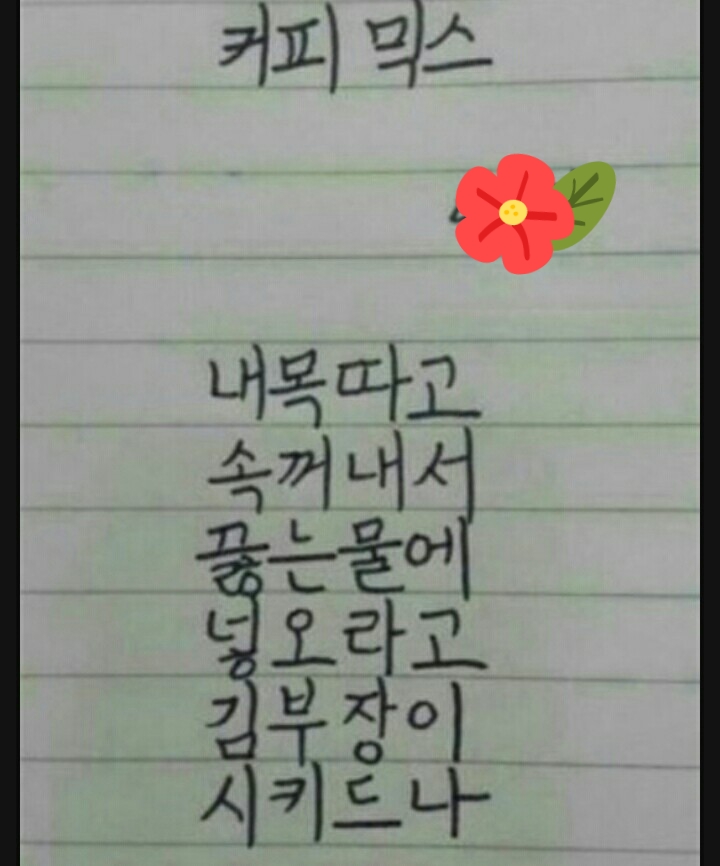 커피 믹스
내목따고
속꺼내서
끓는물에
넣오라고
김부장이
시키드나